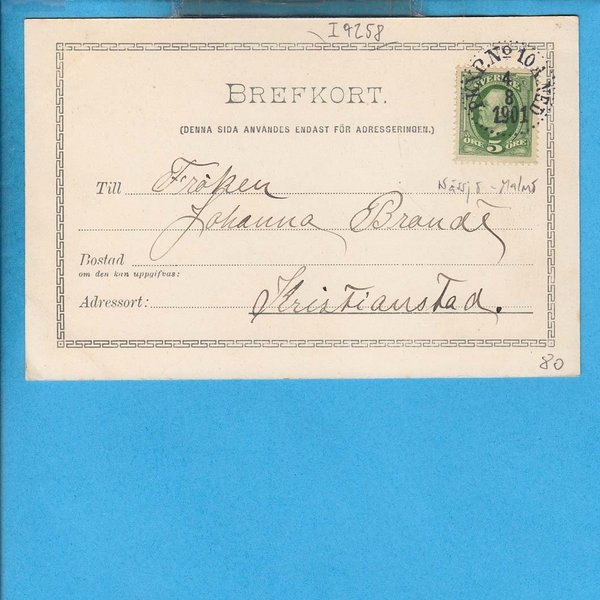 I9258
BREFKORT.
(DENNA SIDA ANVANDES ENDAST FÖR ADRESSERINGEN.)
PKXP. No 10 A NED.
4
8
1901
SVERIGE
ÖRE 5 ÖRE
Till Fröken
Nässjö - Malmö
Johanna Brandt
Bostad
om den kan uppgifvas:
Adressort: Kristianstad.
80